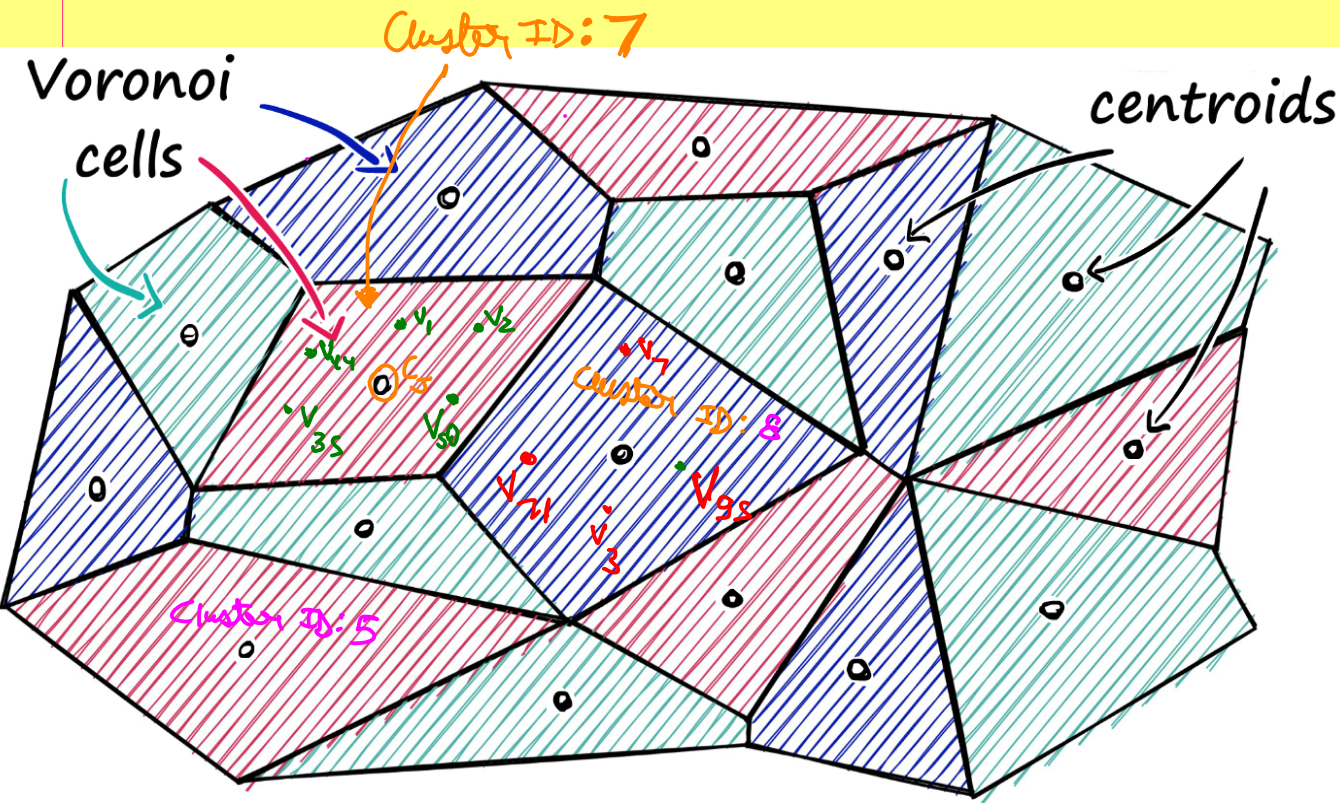 Cluster ID: 7
Voronoi
cells
centroids
V1
V2
V44
V35
V50
V7
Cluster ID: 8
V21
V95
V3
Cluster ID: 5